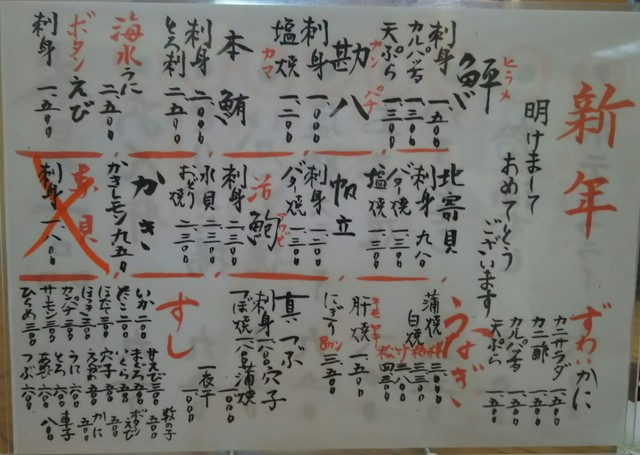 新年
明けまして
おめでとう
ございます
ヒラメ
鮃
刺身 一、五〇〇
カルパッチョ 一、三〇〇
天ぷら 一、三〇〇
カンパチ
勘八
刺身 一、〇〇〇
塩焼 一、二〇〇
カマ
本鮪
刺身 二、〇〇〇
とろ刺 二、五〇〇
海水うに
二、五〇〇
ボタンえび
刺身 一、五〇〇
北寄貝
刺身 九八〇
バタ焼 一、三〇〇
塩焼 一、三〇〇
帆立
刺身 一、〇〇〇
バタ焼 一、二〇〇
アワビ
活鮑
刺身 二、三〇〇
水貝 二、三〇〇
おどり焼 二、三〇〇
かき
かきレモン 九五〇
刺身 一、八〇〇
ずわいかに
カニサラダ 一、五〇〇
カニ酢 一、五〇〇
カルパッチョ 一、五〇〇
天ぷら 一、五〇〇
うなぎ
蒲焼
白焼
肝焼 一、五〇〇
にぎり 8カン 三、五〇〇
真つぶ
刺身
つぼ焼
穴子
蒲焼
一夜干 一、〇〇〇
すし
いか 二〇〇
たこ
ほたて
ほっき
カンパチ 三〇〇
サーモン 三〇〇
ひらめ 三〇〇
甘えび
まぐろ
とら
穴子
えんがわ
うに 六〇〇
とろ 六〇〇
あわび 六〇〇
つぶ 六〇〇
数の子
ボタンえび
かに 五〇〇
車子 八〇〇